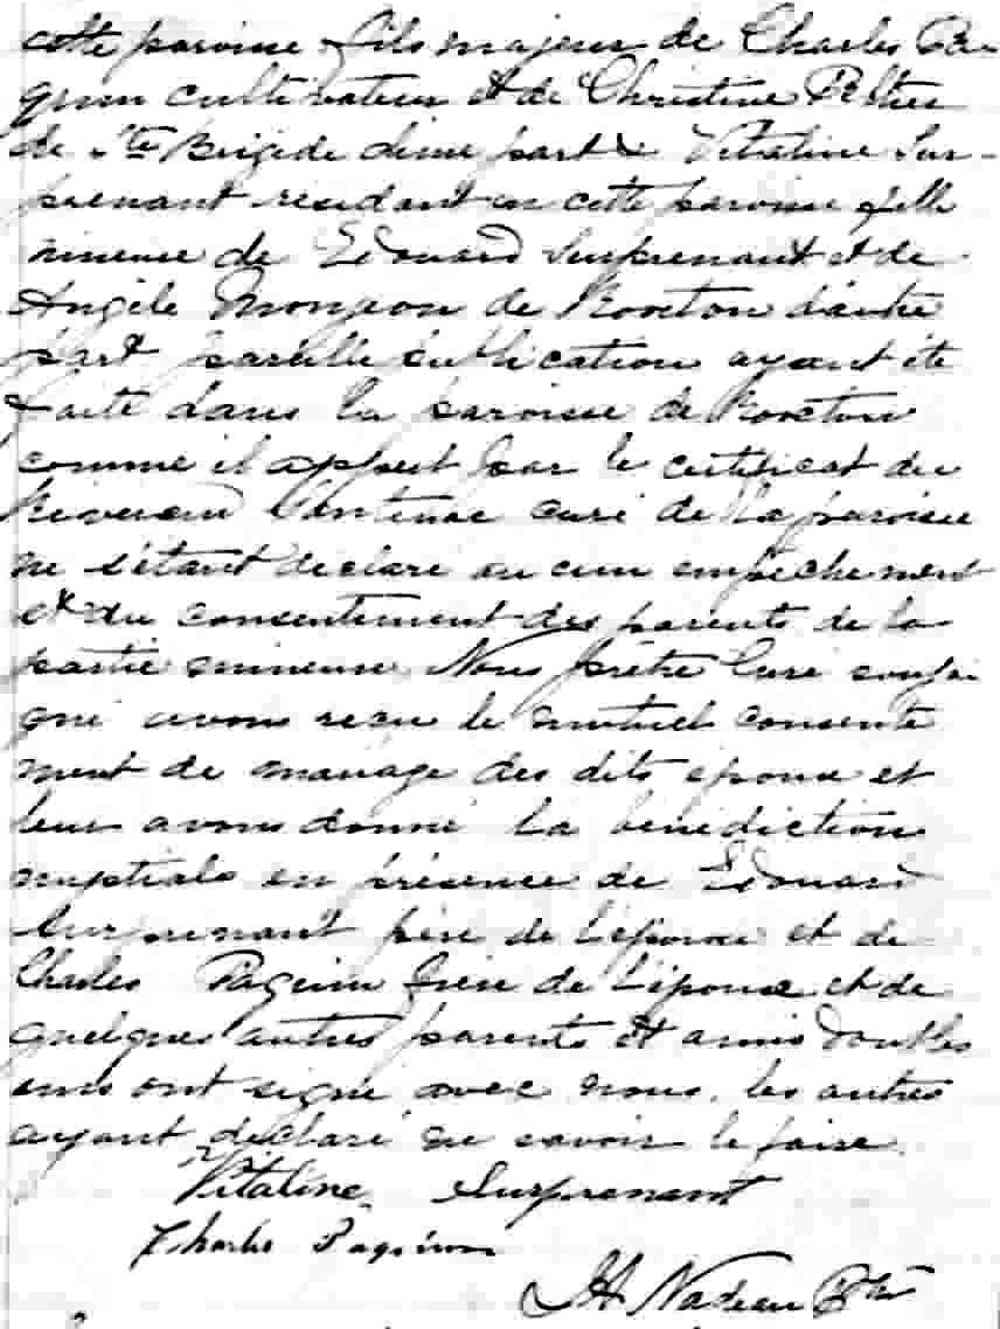 cette paroisse fils majeur de Charles Pa-
quin cultivateur et de Christine Peltier
de Ste Brigide d'une part et Vitaline Sur-
prenant residant en cette paroisse fille
mineure de Edouard Surprenant et de
Angèle Monjeon de Roxton d'autre
part pareille publication ayant été
faite dans la paroisse de Roxton
comme il appert par le certificat du
Reverend curé de la paroisse
ne s'étant declaré aucun empêchement
et du consentement des parents de la
partie mineure Nous prêtre Curé soussi
gné avons reçu le mutuel consente
ment de mariage des dits epoux et
leur avons donné la bénédiction
nuptiale en présence de Edouard
Surprenant père de l'épouse et de
Charles Paquin frère de l'épouse et de
quelques autres parents et amis dont les
uns ont signé avec nous. les autres
ayant declaré ne savoir le faire.
Vitaline Surprenant
Charles Paquin
JA Nadeau Ptre